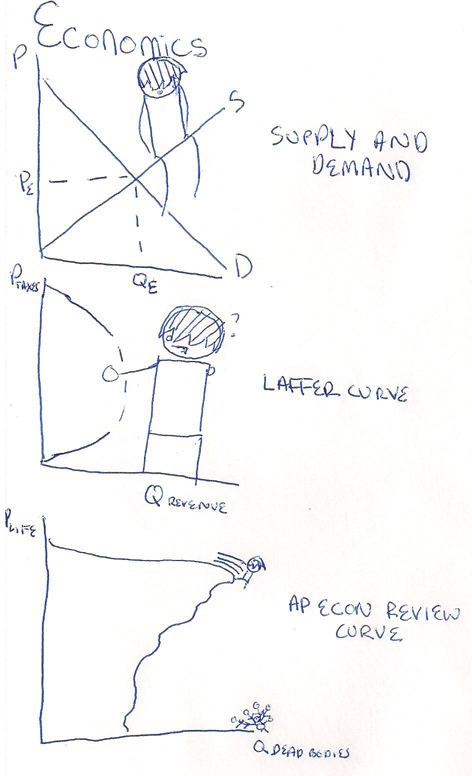 ECONOMICS
P
S
SUPPLY AND
DEMAND
PE
QE
D
PTAXES
?
LAFFER CURVE
QREVENUE
PLIFE
AP ECON REVIEW
CURVE
QDEAD BODIES